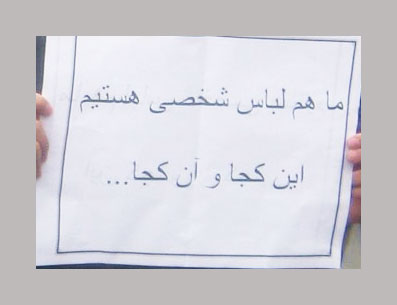 ما هم لباس شخصی هستیم
این کجا و آن کجا...